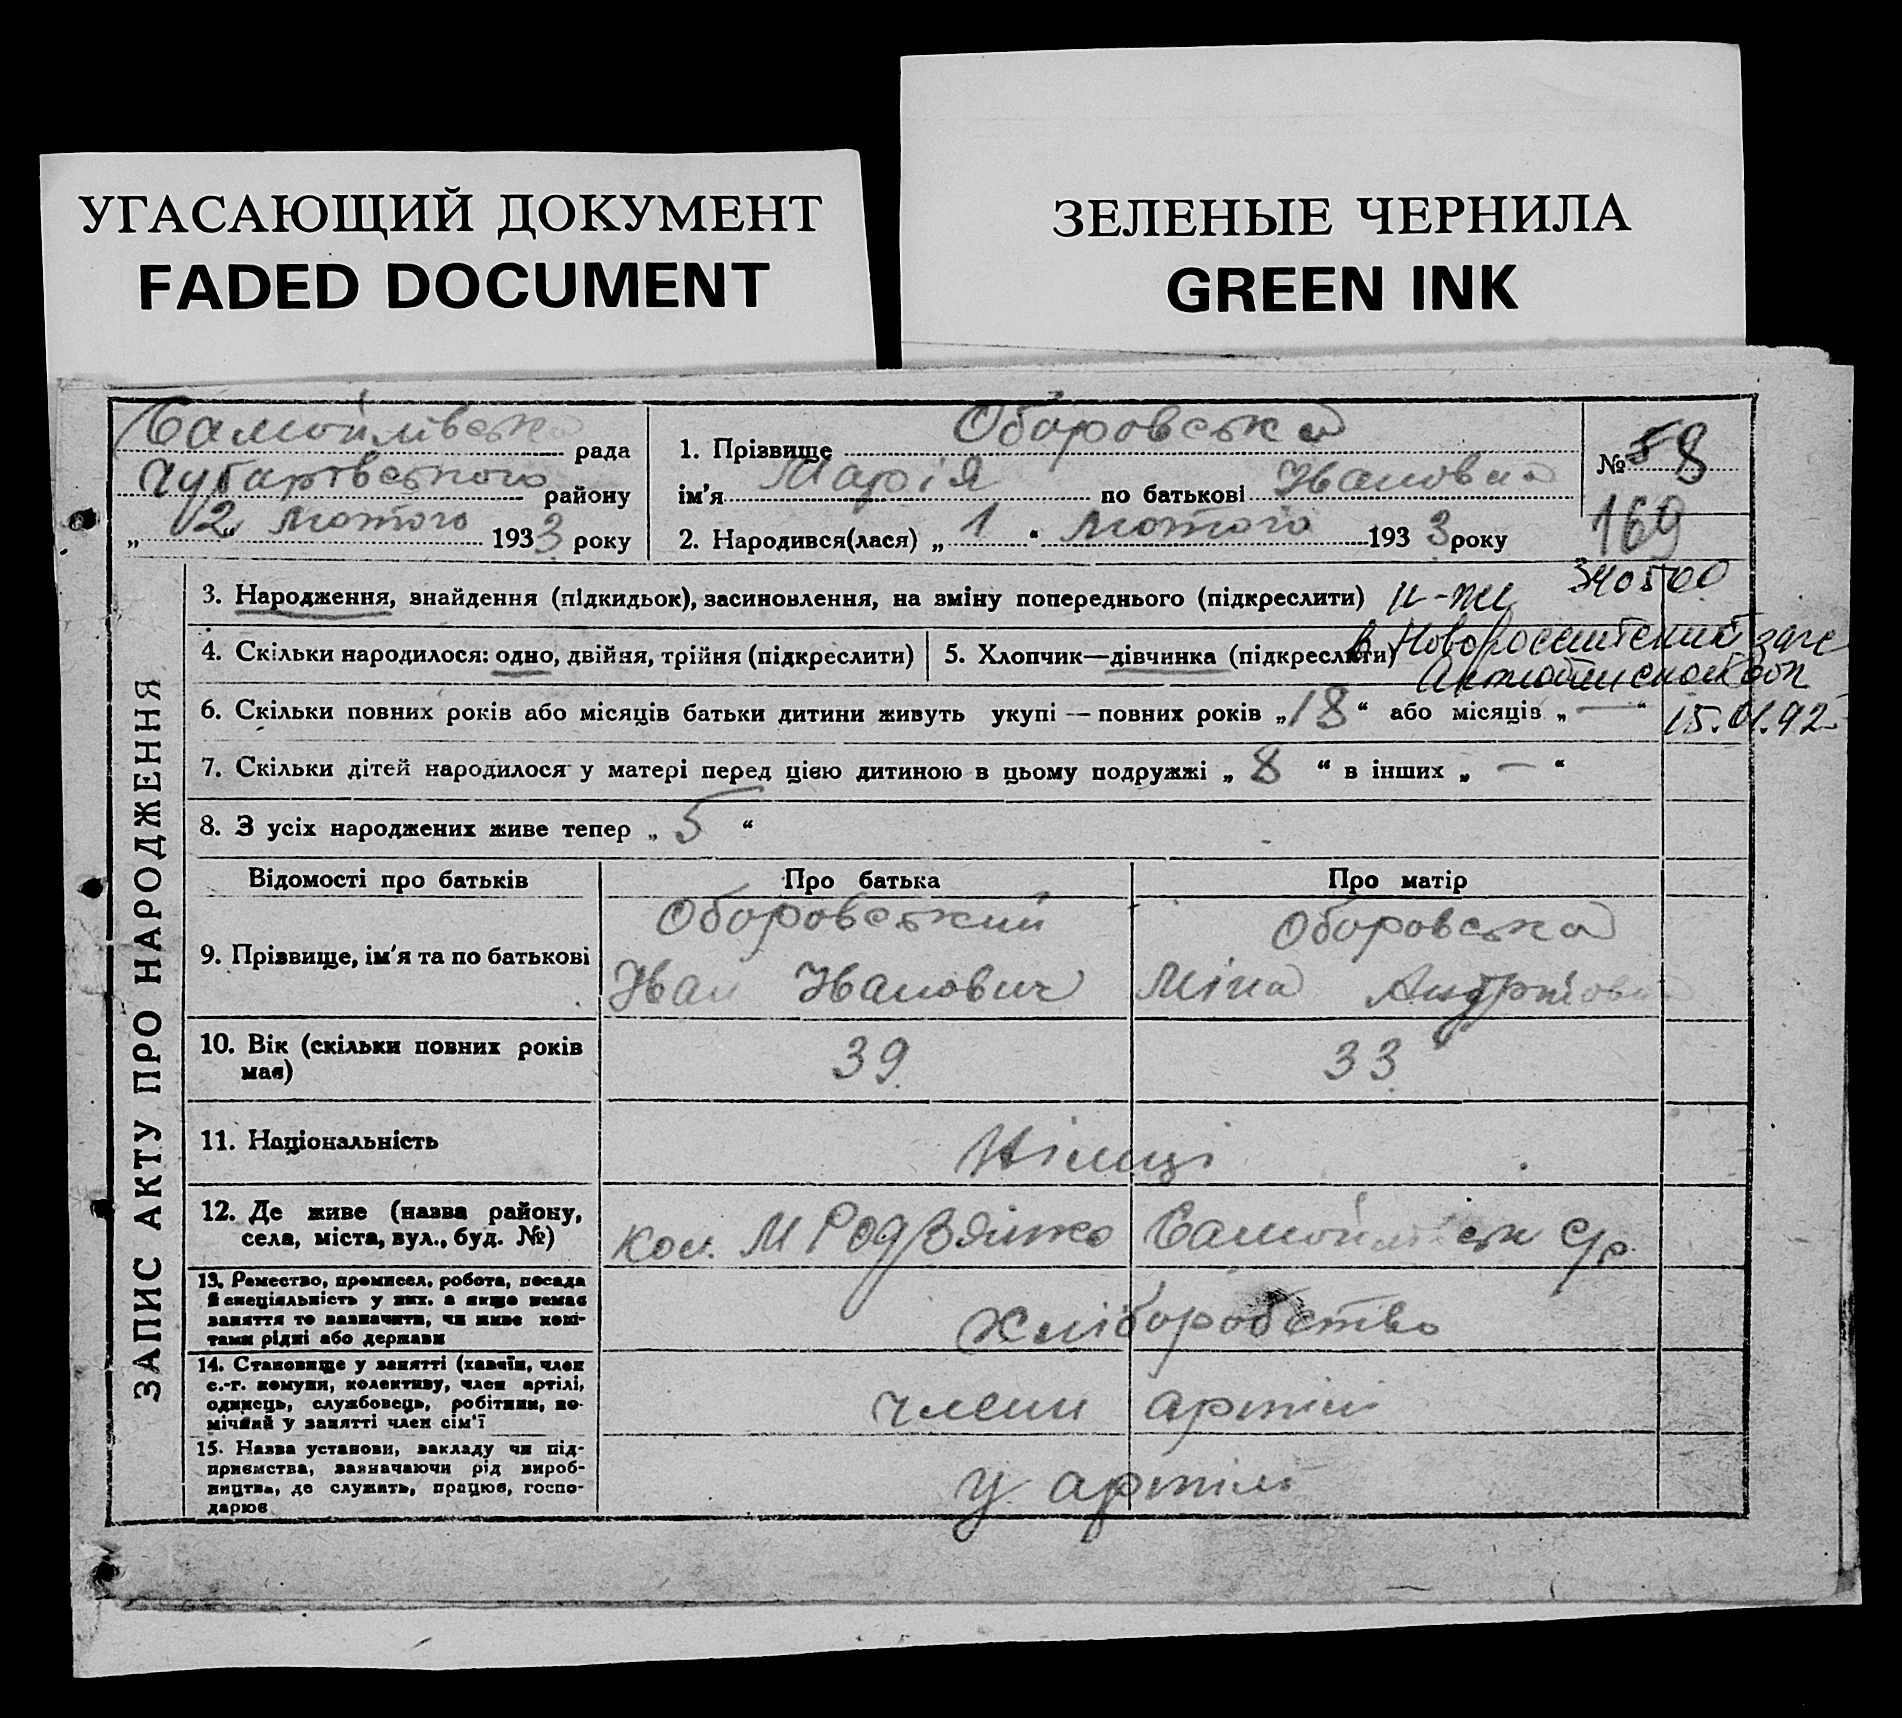 УГАСАЮЩИЙ ДОКУМЕНТ
FADED DOCUMENT
ЗЕЛЕНЫЕ ЧЕРНИЛА
GREEN INK
Самойлівська рада
Чубарівського району
„ 2 “ лютого 1933 року
1. Прізвище Оборовська
ім'я Марія по батькові Івановна
2. Народився(лася) „ 1 “ лютого 1933 року
№ 8
169
ЗАПИС АКТУ ПРО НАРОДЖЕННЯ
3. Народження, знайдення (підкидьок), засиновлення, на зміну попереднього (підкреслити)
340500
4. Скільки народилося: одно, двійня, трійня (підкреслити)
5. Хлопчик—дівчинка (підкреслити)
в Новороссийский загс
Актюбинской обл
15.01.92
6. Скільки повних років або місяців батьки дитини живуть укупі — повних років „ 18 “ або місяців „ — “
7. Скільки дітей народилося у матері перед цією дитиною в цьому подружжі „ 8 “ в інших „ — “
8. З усіх народжених живе тепер „ 5 “
Відомості про батьків
Про батька
Про матір
9. Прізвище, ім'я та по батькові
Оборовський
Іван Іванович
Оборовська
Міна Андріївна
10. Вік (скільки повних років має)
39
33
11. Національність
Німці
12. Де живе (назва району,
села, міста, вул., буд. №)
кол. М Родзянко Самойлівськ с/р
13. Ремество, промисел, робота, посада
й спеціяльність у них, а якщо немає
заняття то зазначити, чи живе кош-
тами рідні або держави
хліборобство
14. Становище у занятті (хазяїн, член
с.-г. комуни, колективу, член артілі,
одинець, службовець, робітник, по-
мічний у занятті член сім'ї
члени артілі
15. Назва установи, закладу чи під-
приємства, зазначаючи рід вироб-
ництва, де служить, працює, госпо-
дарює
у артілі